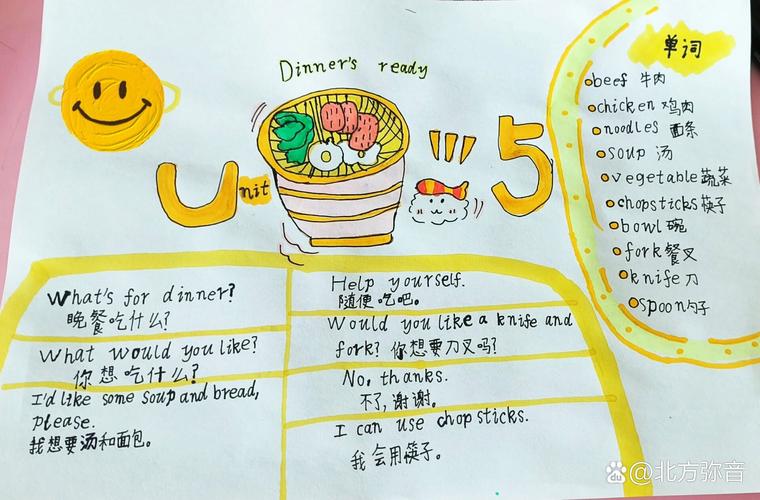 Dinner's ready
Unit 5
What's for dinner?
晚餐吃什么?
What would you like?
你想吃什么?
I'd like some soup and bread,
please.
我想要汤和面包。
Help yourself.
随便吃吧。
Would you like a knife and
fork? 你想要刀叉吗?
No, thanks.
不了,谢谢。
I can use chopsticks.
我会用筷子。
单词
beef 牛肉
chicken 鸡肉
noodles 面条
soup 汤
vegetable 蔬菜
chopsticks 筷子
bowl 碗
fork 餐叉
knife 刀
spoon 勺子
@北方弥音